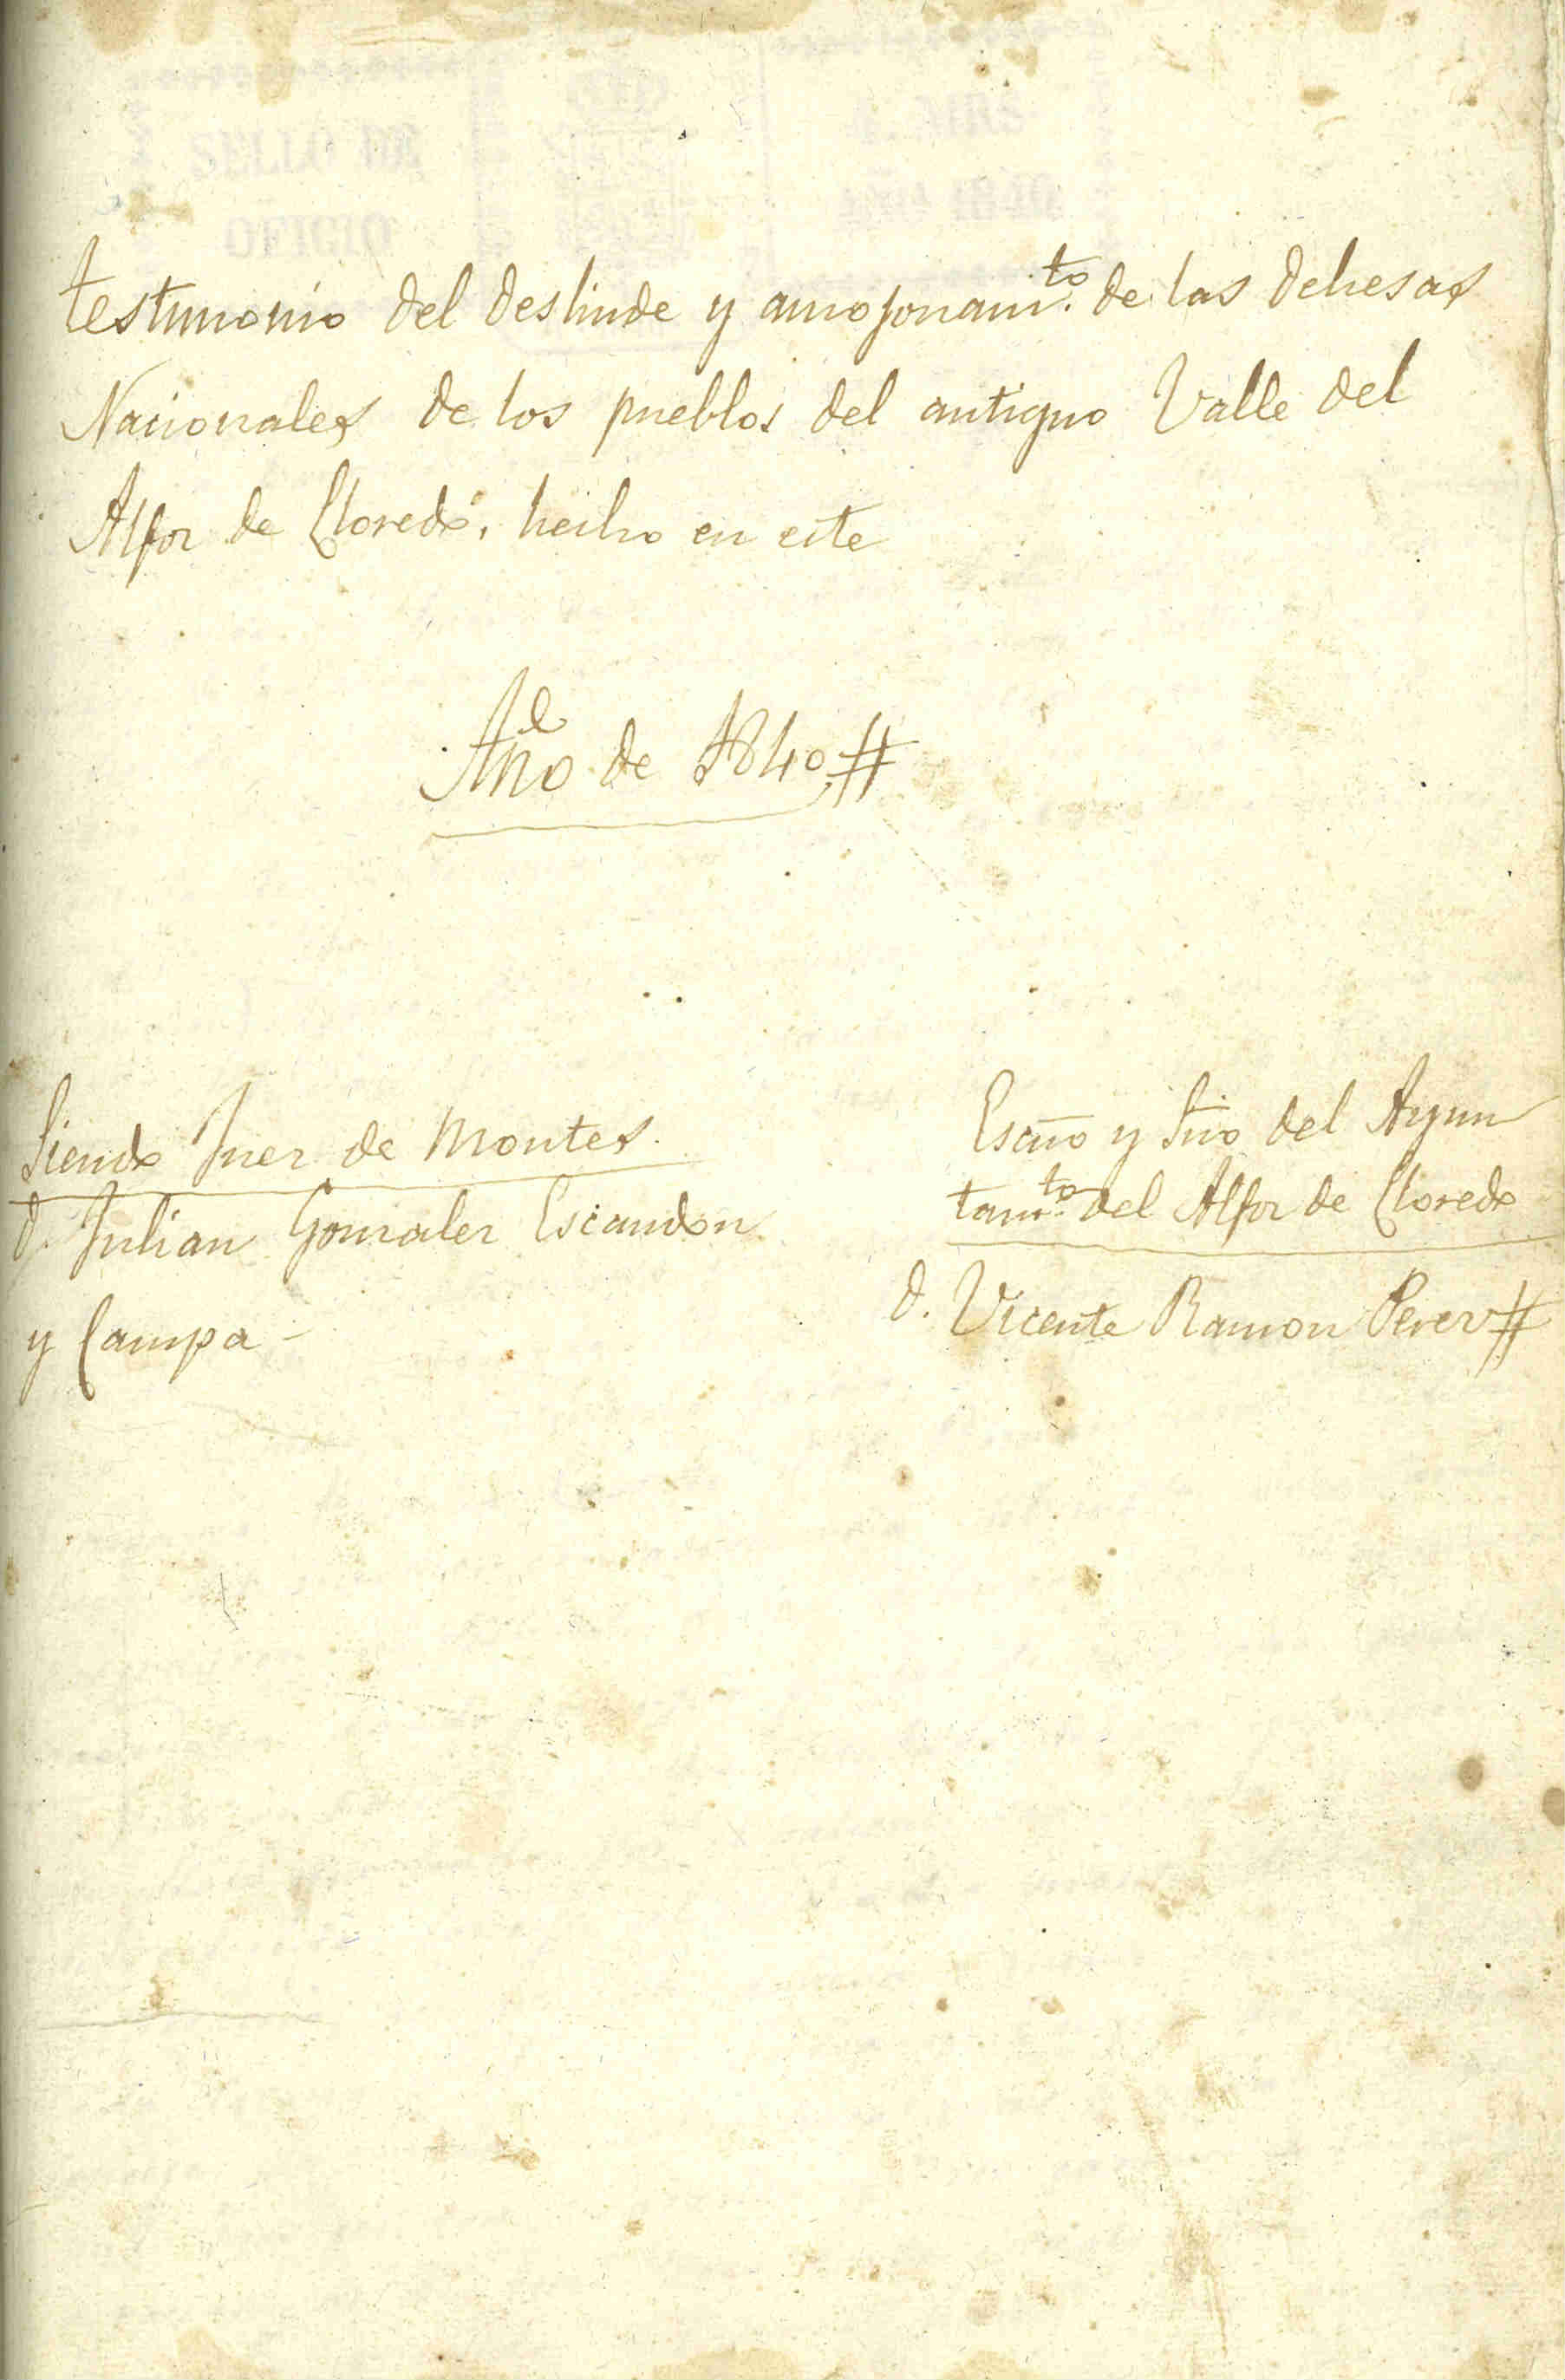 testimonio del deslinde y amojonamto. de las dehesas
Nacionales de los pueblos del antiguo Valle del
Alfoz de Lloredo, hecho en este
Año de 1840,#
Siendo Juez de Montes
d. Julian Gonzalez Escandon
y Campa -
Escno y Srio del Ayun
tamto. del Alfoz de Lloredo
d. Vicente Ramon Perez#
SELLO DE
OFICIO
4. MRS
AÑO 1840